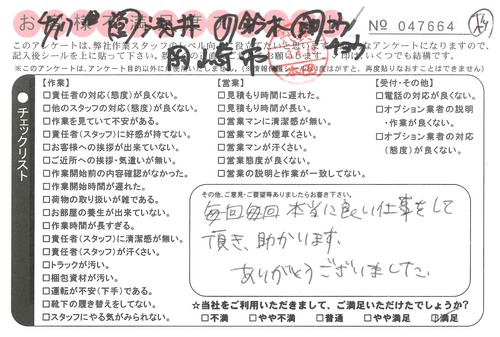 お客様 満足 葉
鈴木
岡崎市
No 047664
このアンケートは、弊社作業スタッフのレベル向上に役立てたいと思い
記入後シールを上に貼って下さい。
印は、いくつでも結構です。
チェックリスト
【作業】
□責任者の対応(態度)が良くない。
□他のスタッフの対応(態度)が良くない。
□作業を見ていて不安がある。
□責任者(スタッフ)に好感が持てない。
□お客様への挨拶が出来ていない。
□ご近所への挨拶・気遣いが無い。
□作業開始前の内容確認がなかった。
□作業開始時間が遅れた。
□荷物の取り扱いが雑である。
□お部屋の養生が出来ていない。
□作業時間が長すぎる。
□責任者(スタッフ)に清潔感が無い。
□責任者(スタッフ)が汗くさい。
□トラックが汚い。
□梱包資材が汚い。
□運転が不安(下手)である。
□靴下の履き替えをしてない。
□スタッフにやる気がみられない。
【営業】
□見積もり時間に遅れた。
□見積もり時間が長い。
□営業マンに清潔感が無い。
□営業マンが煙草くさい。
□営業マンが汗くさい。
□営業態度が良くない。
□営業の説明と作業が一致してない。
【受付・その他】
□電話の対応が良くない。
□オプション業者の説明
・作業が良くない。
□オプション業者の対応
(態度)が良くない。
その他、ご意見・ご要望等ありましたらお書き下さい。
毎回毎回本当に良い仕事をして
頂き、助かります。
ありがとうございました。
☆当社をご利用いただきまして、ご満足いただけたでしょうか?
□不満 □やや不満 □普通 □やや満足 □満足